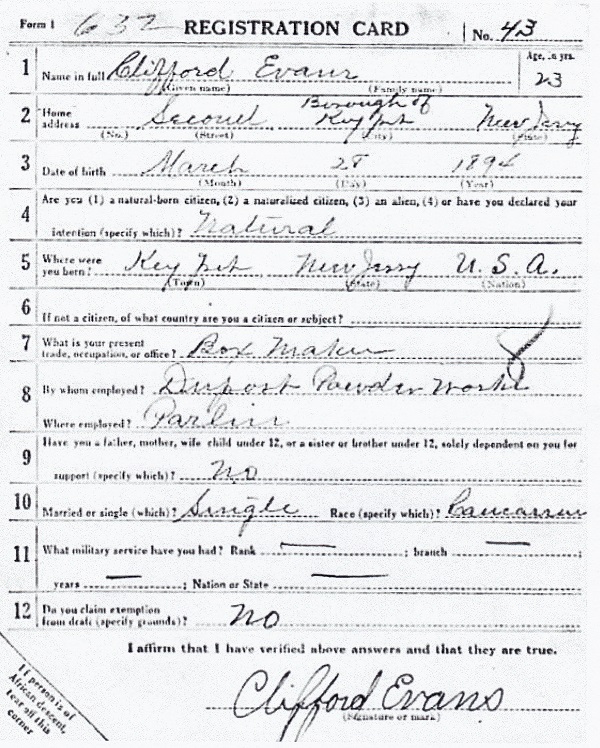 Form 1 632 REGISTRATION CARD No. 43
1 Name in full Clifford Evans Age, in yrs. 23
(Given name) (Family name)
Borough of
2 Home address Second Key Port New Jersy
(No.) (Street) (City) (State)
3 Date of birth March 28 1894
(Month) (Day) (Year)
4 Are you (1) a natural-born citizen, (2) a naturalized citizen, (3) an alien, (4) or have you declared your
intention (specify which)? Natural
5 Where were you born? Key Port New Jersy U. S. A.
(Town) (State) (Nation)
6 If not a citizen, of what country are you a citizen or subject?
7 What is your present trade, occupation, or office? Box Maker
8 By whom employed? Dupont Powder Works
Where employed? Parlin
9 Have you a father, mother, wife child under 12, or a sister or brother under 12, solely dependent on you for
support (specify which)? No
10 Married or single (which)? Single Race (specify which)? Caucasian
11 What military service have you had? Rank — ; branch — ;
years — ; Nation or State —
12 Do you claim exemption from draft (specify grounds)? No
I affirm that I have verified above answers and that they are true.
Clifford Evans
(Signature or mark)
If person is of
African descent,
tear off this
corner